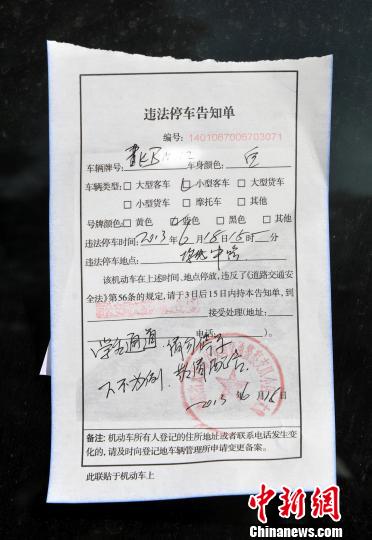 违法停车告知单
编号: 1401067006703071
车辆牌号: 车身颜色: 白
车辆类型: □ 大型客车 □ 小型客车 □ 大型货车
□ 小型货车 □ 摩托车 □ 其他
号牌颜色: □ 黄色 □ 蓝色 □ 黑色 □ 其他
违法停车时间: 2013 年 6 月 18 日 15 时 分
违法停车地点: 中路
该机动车在上述时间、地点停放,违反了《道路交通安
全法》第56条的规定,请于3日后15日内持本告知单,到
接受处理(地址:
电话: )。
学生通道,请勿停车
下不为例,敬请配合
2013 年 6 月 18 日
备注: 机动车所有人登记的住所地址或者联系电话发生变
化的,请及时向登记地车辆管理所申请变更备案。
此联贴于机动车上
中新网
Chinanews.com